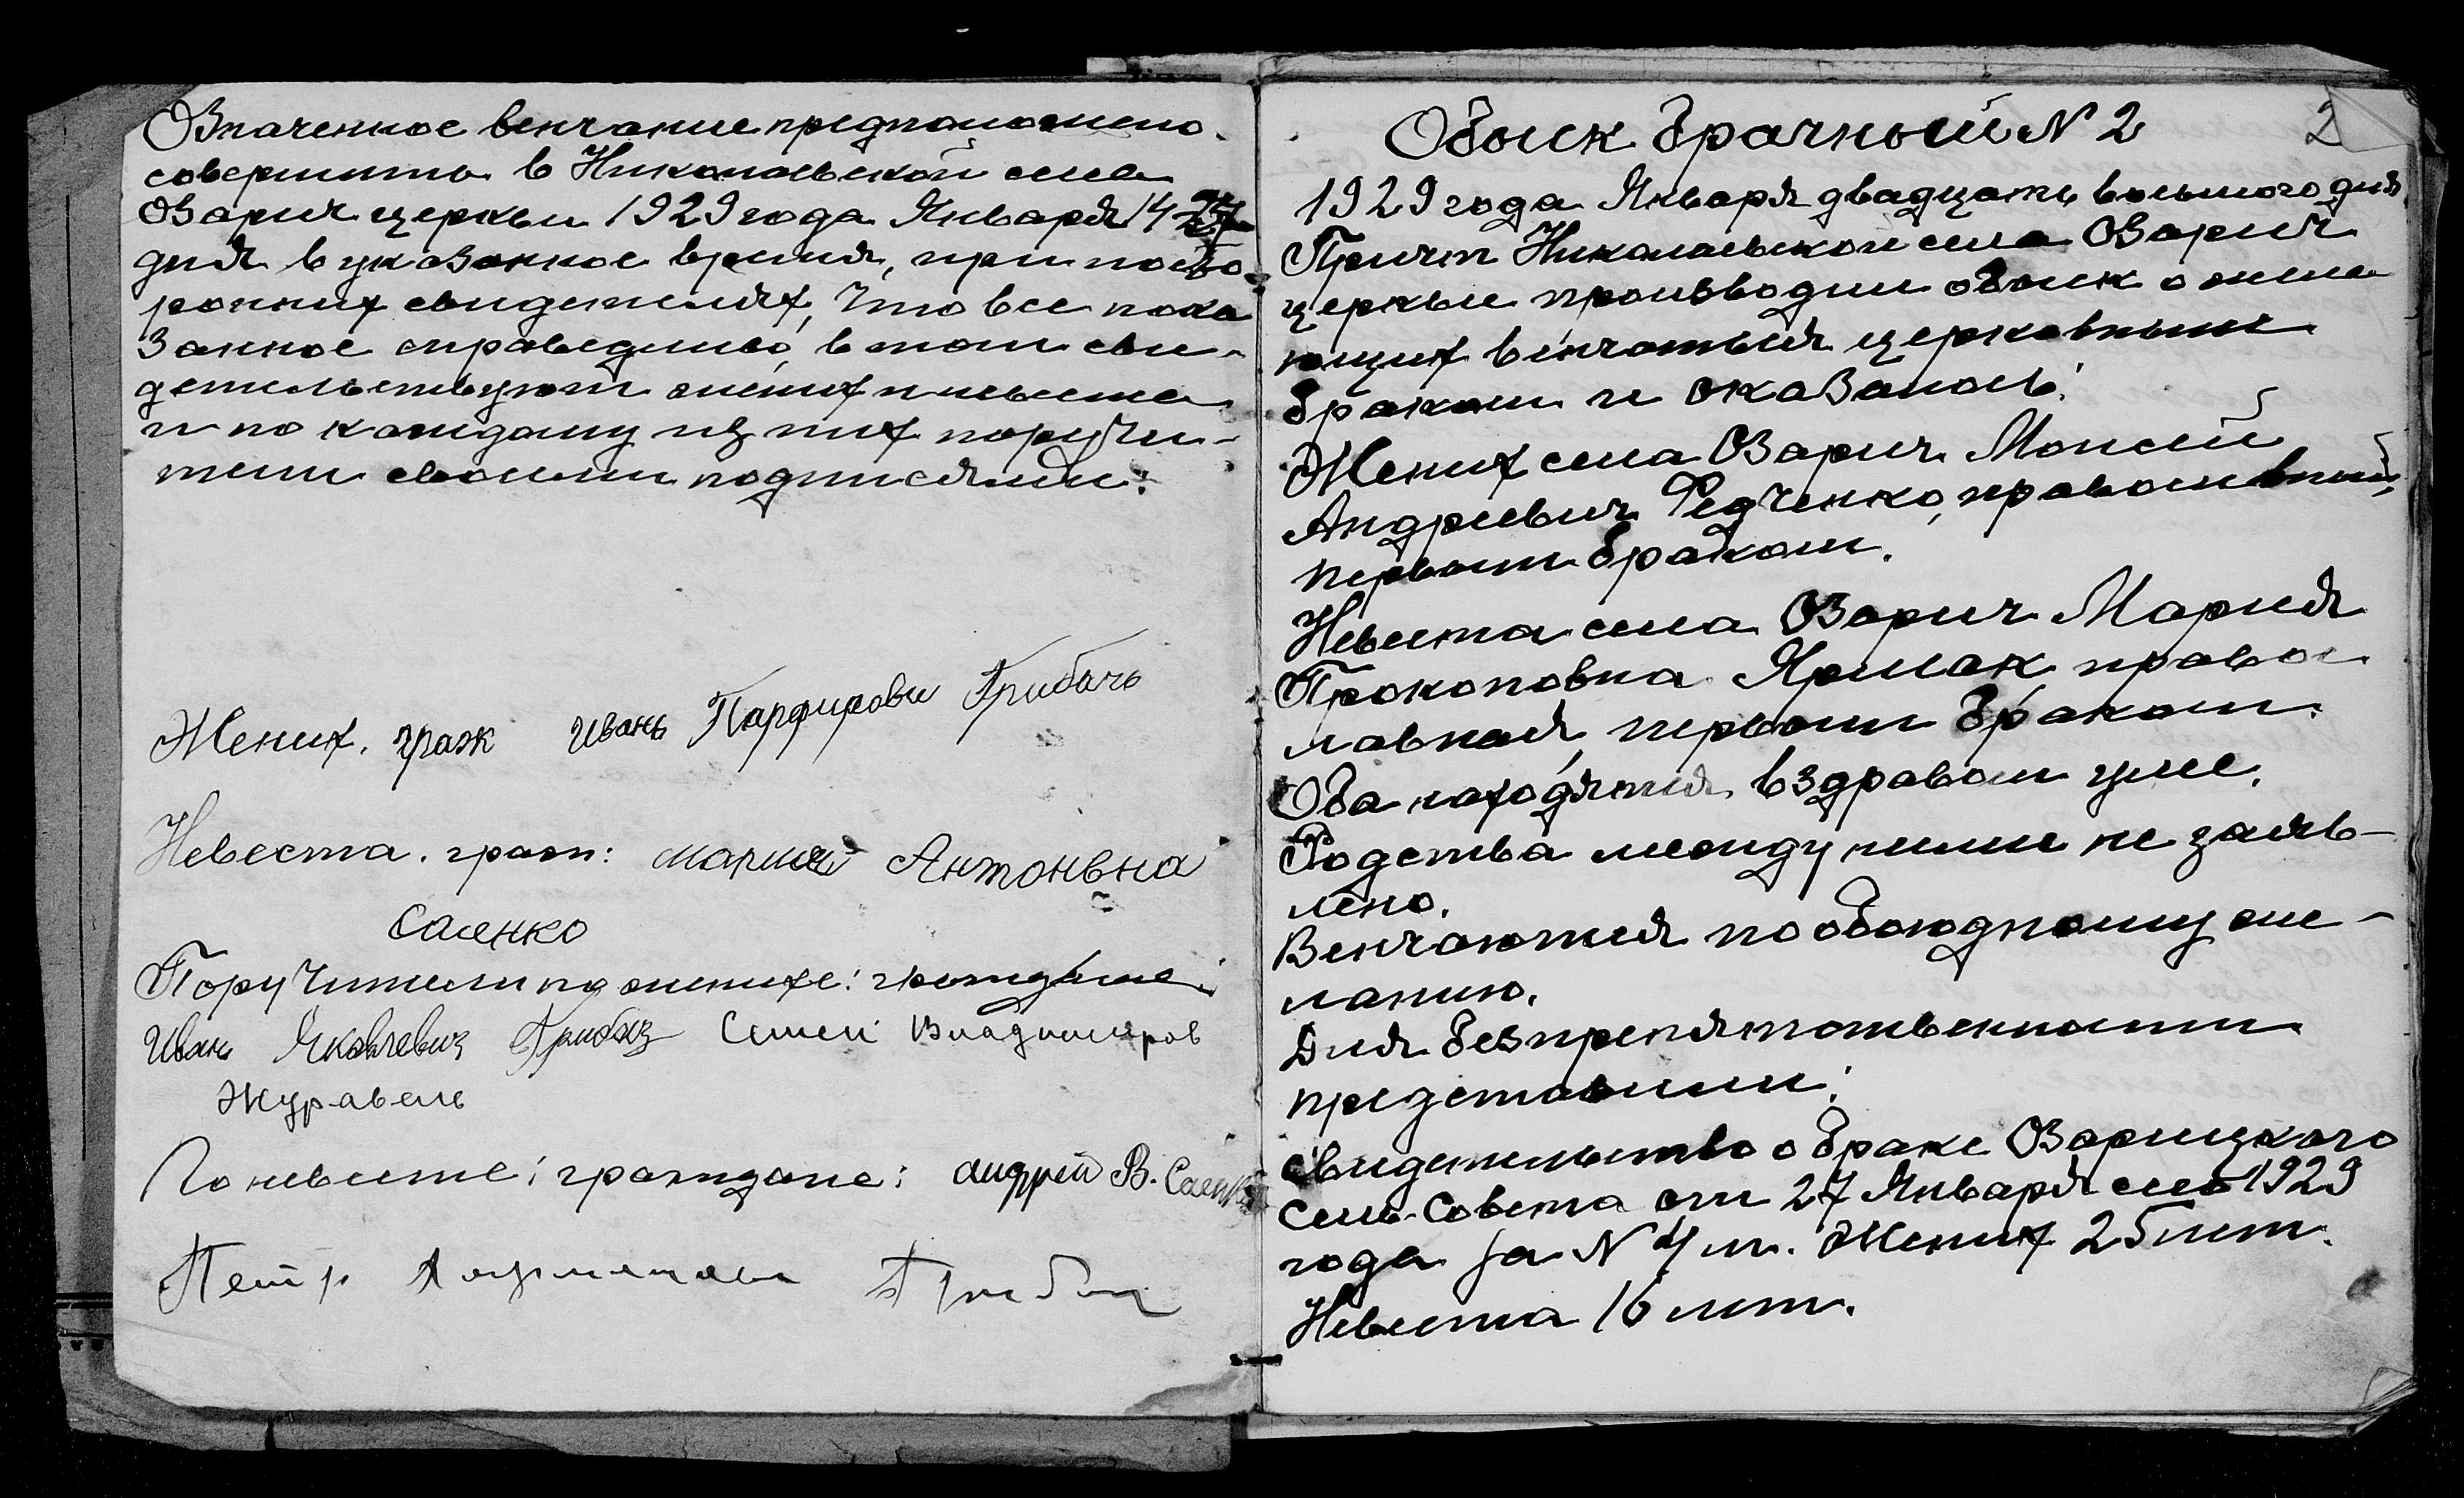 Означенное венчание предположено
совершить в Николаевской села
Озарич церкви 1929 года Января 14 27
дня в указанное время, при посто-
ронних свидетелях, что все пока
занное справедливо, в том сви-
детельствуют жених и невеста
и по каждому из них поручи-
тели своими подписями:
Жених, граж Иванъ Парфирови Грибачъ
Невеста. граж: Мария Антонвна
Саенко
Поручители по женихе: граждане:
Иван Яковлевич Грибач Семен Владимиров
Журавель
По невесте: граждане: Андрей В. Саенко
Петр Грибач
Обыск брачный N 2
2
1929 года Января двадцать восьмого дня
Причт Николаевской села Озарич
церкви производили обыск о жела
ющих венчаться церковным
браком и оказалось:
Жених села Озарич Моисей
Андреевич Федченко, православный,
первым браком.
Невеста села Озарич Мария
Прокоповна Ярмак правос
лавная, первым браком.
Оба находятся в здравом уме.
Родства между ними не заяв-
лено.
Венчаются по обоюдному же-
ланию.
Для безпрепятственности
представили:
Свидетельство о браке Озарицкого
Сель-Совета от 27 Января сего 1929
года за N 4 м. Жених 25 лет.
Невеста 16 лет.